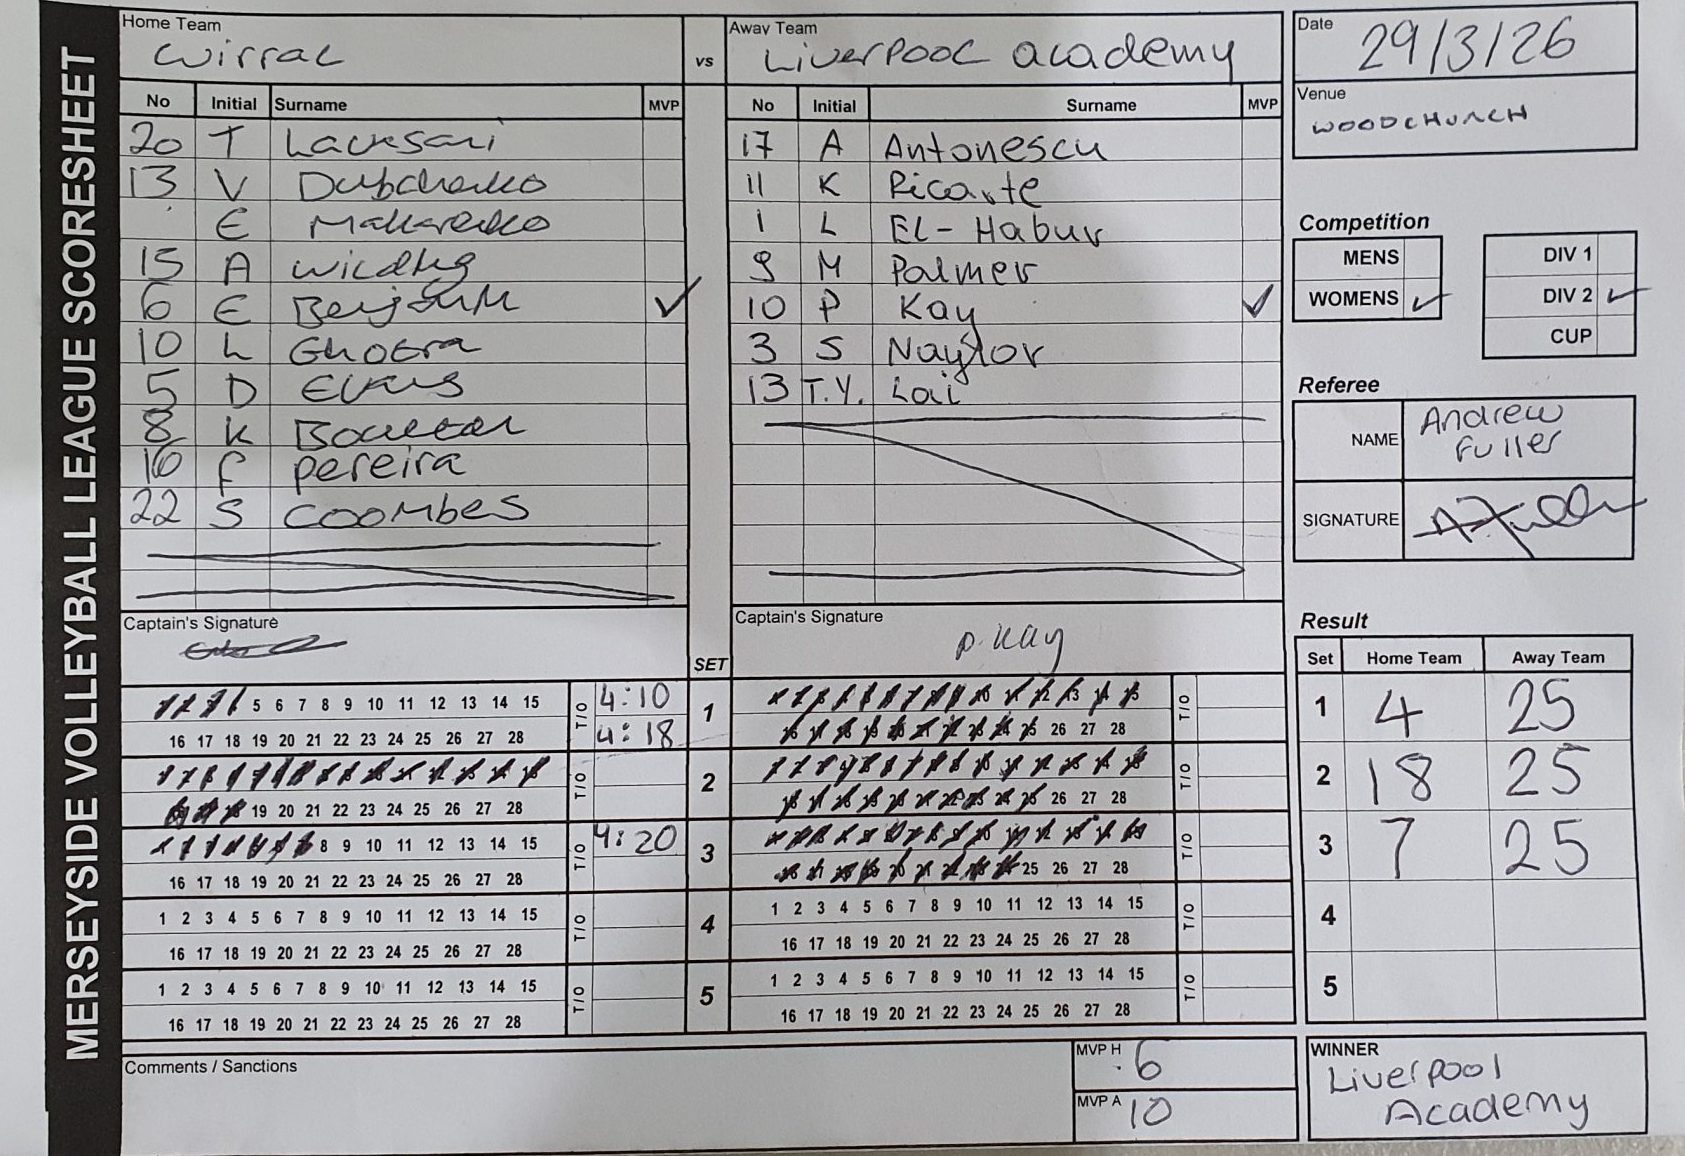 MERSEYSIDE VOLLEYBALL LEAGUE SCORESHEET
Home Team
Wirral
vs
Away Team
Liverpool academy
No Initial Surname MVP
20 T
13 V
E
15 A
6 E ✓
10 L Ghotra
5 D Evans
8 K
16 F Pereira
22 S Coombes
Captain's Signature
No Initial Surname MVP
17 A Antonescu
11 K Ricarte
1 L El-Habur
9 M Palmer
10 P Kay ✓
3 S Naylor
13 T.Y. Lai
Captain's Signature
P. Kay
Date
29/3/26
Venue
WOODCHURCH
Competition
MENS
WOMENS ✓
DIV 1
DIV 2 ✓
CUP
Referee
NAME Andrew
Fuller
SIGNATURE
SET
1 2 3 4 5 6 7 8 9 10 11 12 13 14 15 T/O 4:10 1 1 2 3 4 5 6 7 8 9 10 11 12 13 14 15 T/O
16 17 18 19 20 21 22 23 24 25 26 27 28 4:18 16 17 18 19 20 21 22 23 24 25 26 27 28
1 2 3 4 5 6 7 8 9 10 11 12 13 14 15 T/O 2 1 2 3 4 5 6 7 8 9 10 11 12 13 14 15 T/O
16 17 18 19 20 21 22 23 24 25 26 27 28 16 17 18 19 20 21 22 23 24 25 26 27 28
1 2 3 4 5 6 7 8 9 10 11 12 13 14 15 T/O 4:20 3 1 2 3 4 5 6 7 8 9 10 11 12 13 14 15 T/O
16 17 18 19 20 21 22 23 24 25 26 27 28 16 17 18 19 20 21 22 23 24 25 26 27 28
1 2 3 4 5 6 7 8 9 10 11 12 13 14 15 T/O 4 1 2 3 4 5 6 7 8 9 10 11 12 13 14 15 T/O
16 17 18 19 20 21 22 23 24 25 26 27 28 16 17 18 19 20 21 22 23 24 25 26 27 28
1 2 3 4 5 6 7 8 9 10 11 12 13 14 15 T/O 5 1 2 3 4 5 6 7 8 9 10 11 12 13 14 15 T/O
16 17 18 19 20 21 22 23 24 25 26 27 28 16 17 18 19 20 21 22 23 24 25 26 27 28
Result
Set Home Team Away Team
1 4 25
2 18 25
3 7 25
4
5
Comments / Sanctions
MVP H 6
MVP A 10
WINNER
Liverpool
Academy